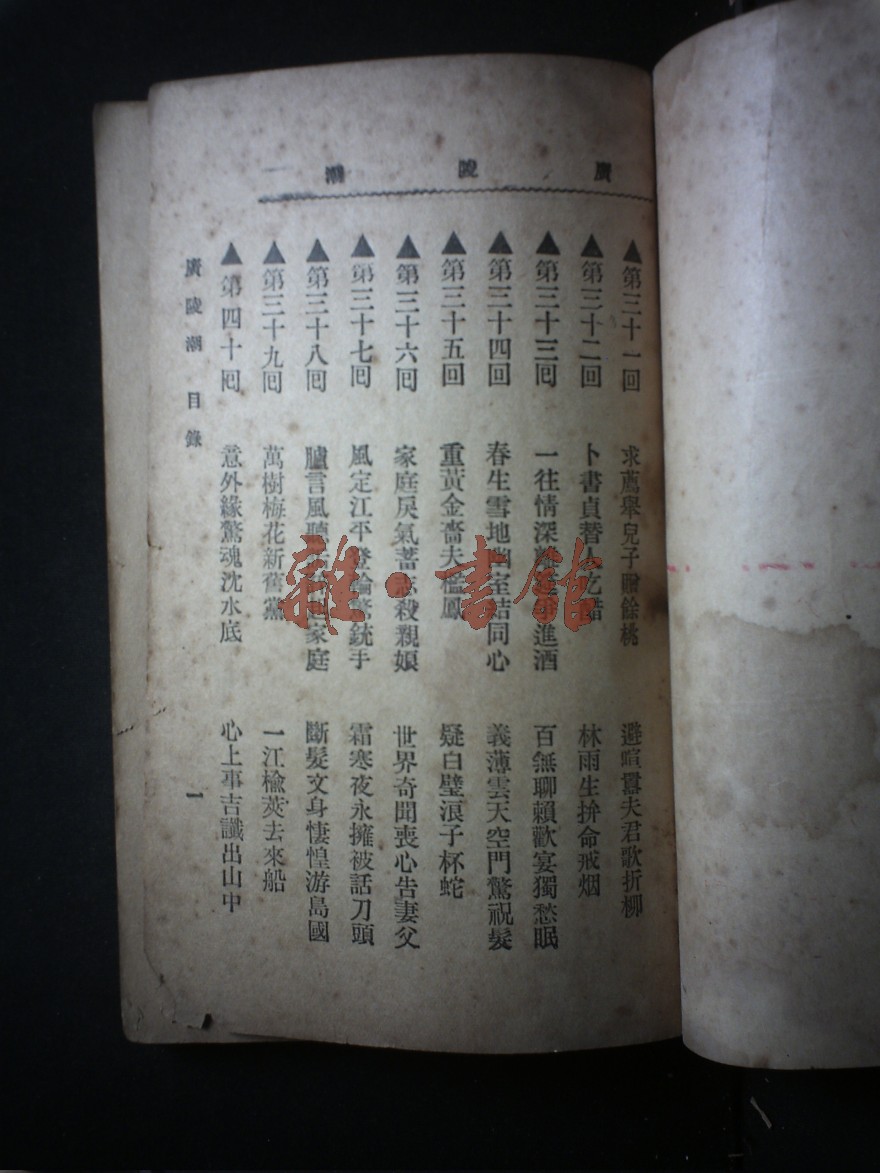 廣陵潮
▲第三十一回 求薦舉兒子贈餘桃 避喧囂夫君歌折柳
▲第三十二回 卜書貞替人吃醋 林雨生拚命戒烟
▲第三十三回 一往情深進酒 百無聊賴歡宴獨愁眠
▲第三十四回 春生雪地幽室結同心 義薄雲天空門驚祝髮
▲第三十五回 重黃金嗇夫檻鳳 疑白璧浪子杯蛇
▲第三十六囘 家庭戾氣蓄殺親娘 世界奇聞喪心告妻父
▲第三十七囘 風定江平登輪驚銃手 霜寒夜永擁被話刀頭
▲第三十八囘 臚言風聽家庭 斷髮文身悽惶游島國
▲第三十九囘 萬樹梅花新舊黨 一江楡莢去來船
▲第四十囘 意外緣驚魂沈水底 心上事吉讖出山中
廣陵潮 目錄 一
雜·書館